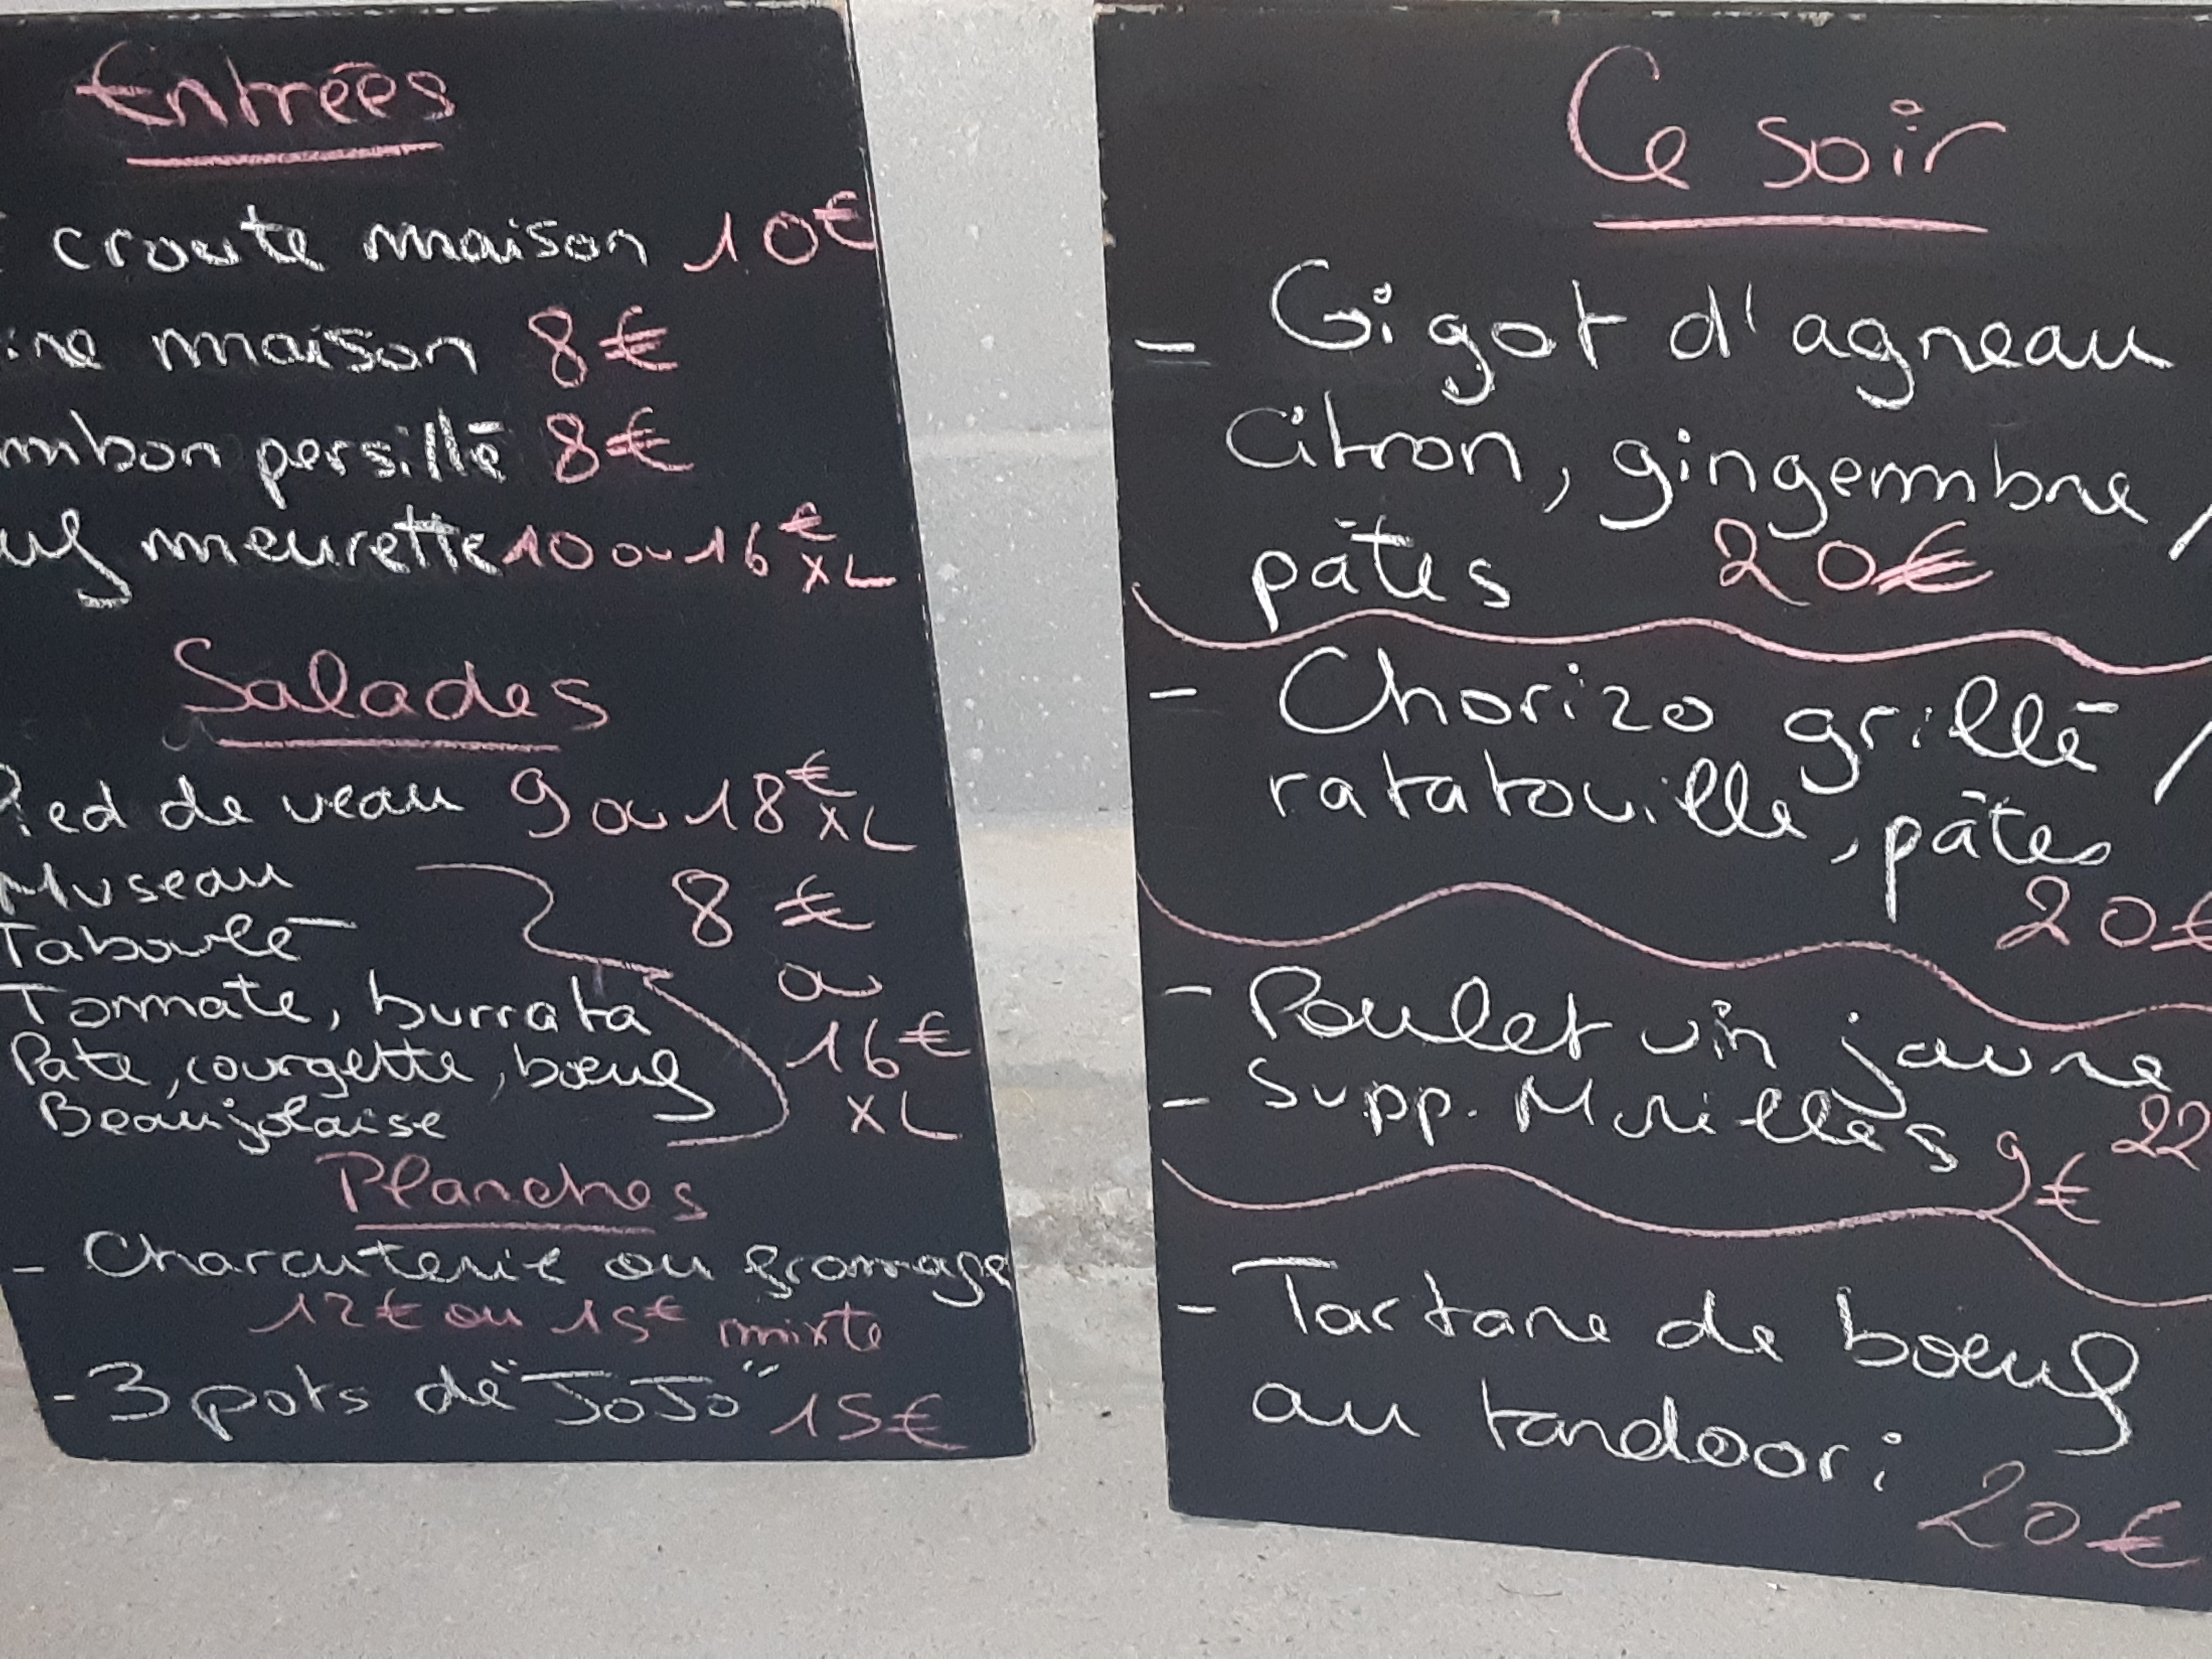 Entrées
croute maison 10€
maison 8€
persillé 8€
meurette 10 ou 16€ XL
Salades
Pied de veau 9 ou 18€ XL
Museau
Taboulé
8€
ou
16€
XL
Tomate, burrata
Pate, courgette, bœuf
Beaujolaise
Planches
- Charcuterie ou fromage
12€ ou 15€ mixte
- 3 pots de "JoJo" 15€
Ce soir
- Gigot d'agneau
citron, gingembre /
pâtes 20€
- Chorizo grillé /
ratatouille, pâtes
20€
- Poulet vin jaune
22
- Supp. Morilles 9€
- Tartare de bœuf
au tandoori 20€